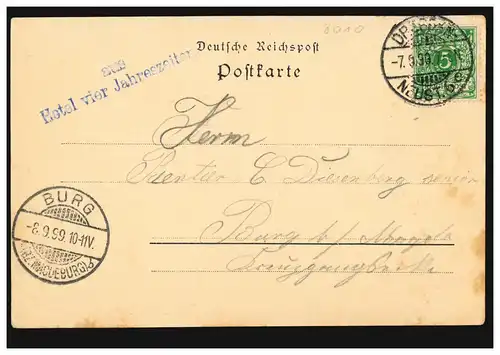 8010
Deutsche Reichspost
Postkarte
aus
Hotel vier Jahreszeiten
DRESDEN
-7.9.99. 7
NEUST. 6 c
5
Herrn
Rentier C. Diesenberg senior
BURG
-8.9.99.10-11V.
(BZ. MAGDEBURG)
Burg b/ Magdeb